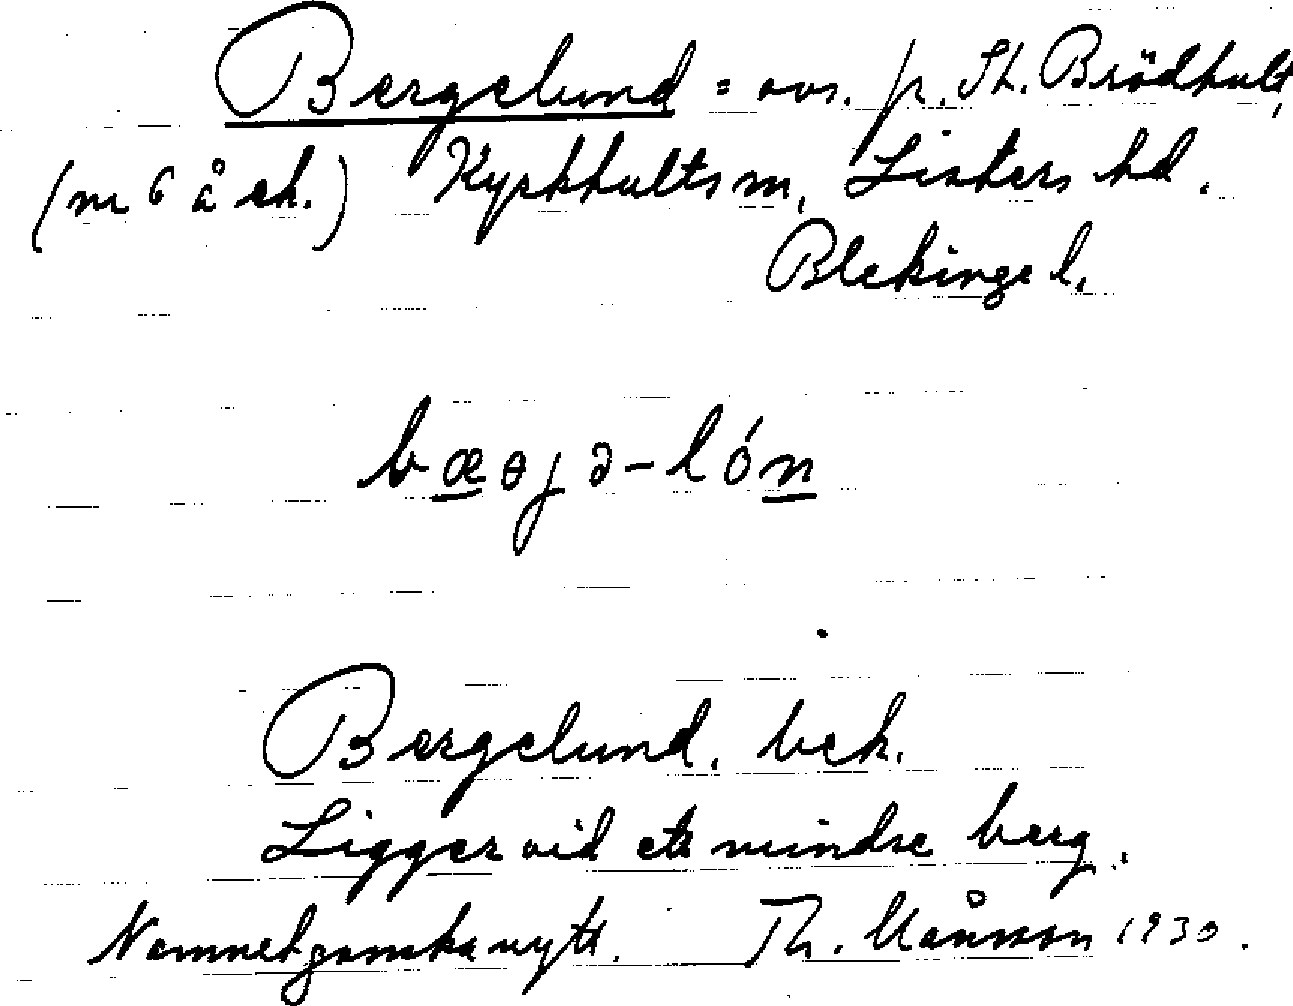 Bergelund = avs. p. St. Brödhult,
(nr 6 å ek.) Kyrkhults sn, Listers hd.
Blekinge l.
bæɵjə-lón
Bergelund. beb.
Ligger vid ett mindre berg.
Namnet ganska nytt. Th. Månsson 1930.